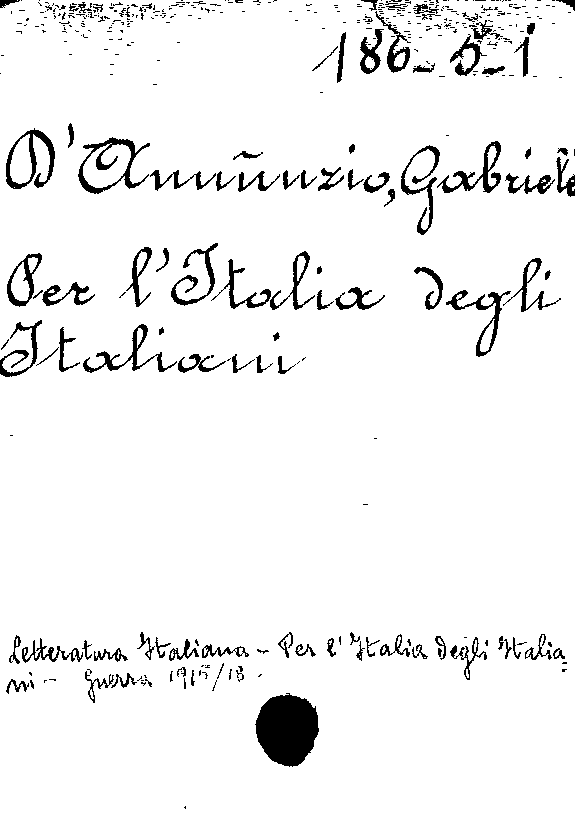 186-5-1
D'Annunzio, Gabriele
Per l'Italia degli
Italiani
Letteratura Italiana - Per l'Italia degli Italia=
ni - Guerra 1915/18.